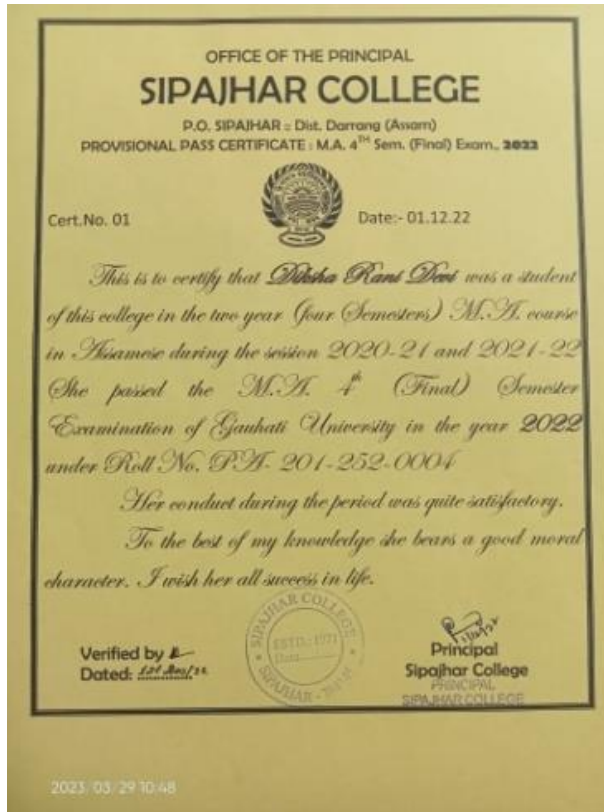 OFFICE OF THE PRINCIPAL
SIPAJHAR COLLEGE
P.O. SIPAJHAR :: Dist. Darrang (Assam)
PROVISIONAL PASS CERTIFICATE : M.A. 4TH Sem. (Final) Exam., 2022
Cert.No. 01 Date:- 01.12.22
This is to certify that Diksha Rani Devi was a student
of this college in the two year (four Semesters) M.A. course
in Assamese during the session 2020-21 and 2021-22
She passed the M.A. 4th (Final) Semester
Examination of Gauhati University in the year 2022
under Roll No. PA- 201-252-0004
Her conduct during the period was quite satisfactory.
To the best of my knowledge she bears a good moral
character. I wish her all success in life.
SIPAJHAR COLLEGE
ESTD.: 1971
SIPAJHAR
Verified by
Dated:
Principal
Sipajhar College
PRINCIPAL
SIPAJHAR COLLEGE
2023/03/29 10:48